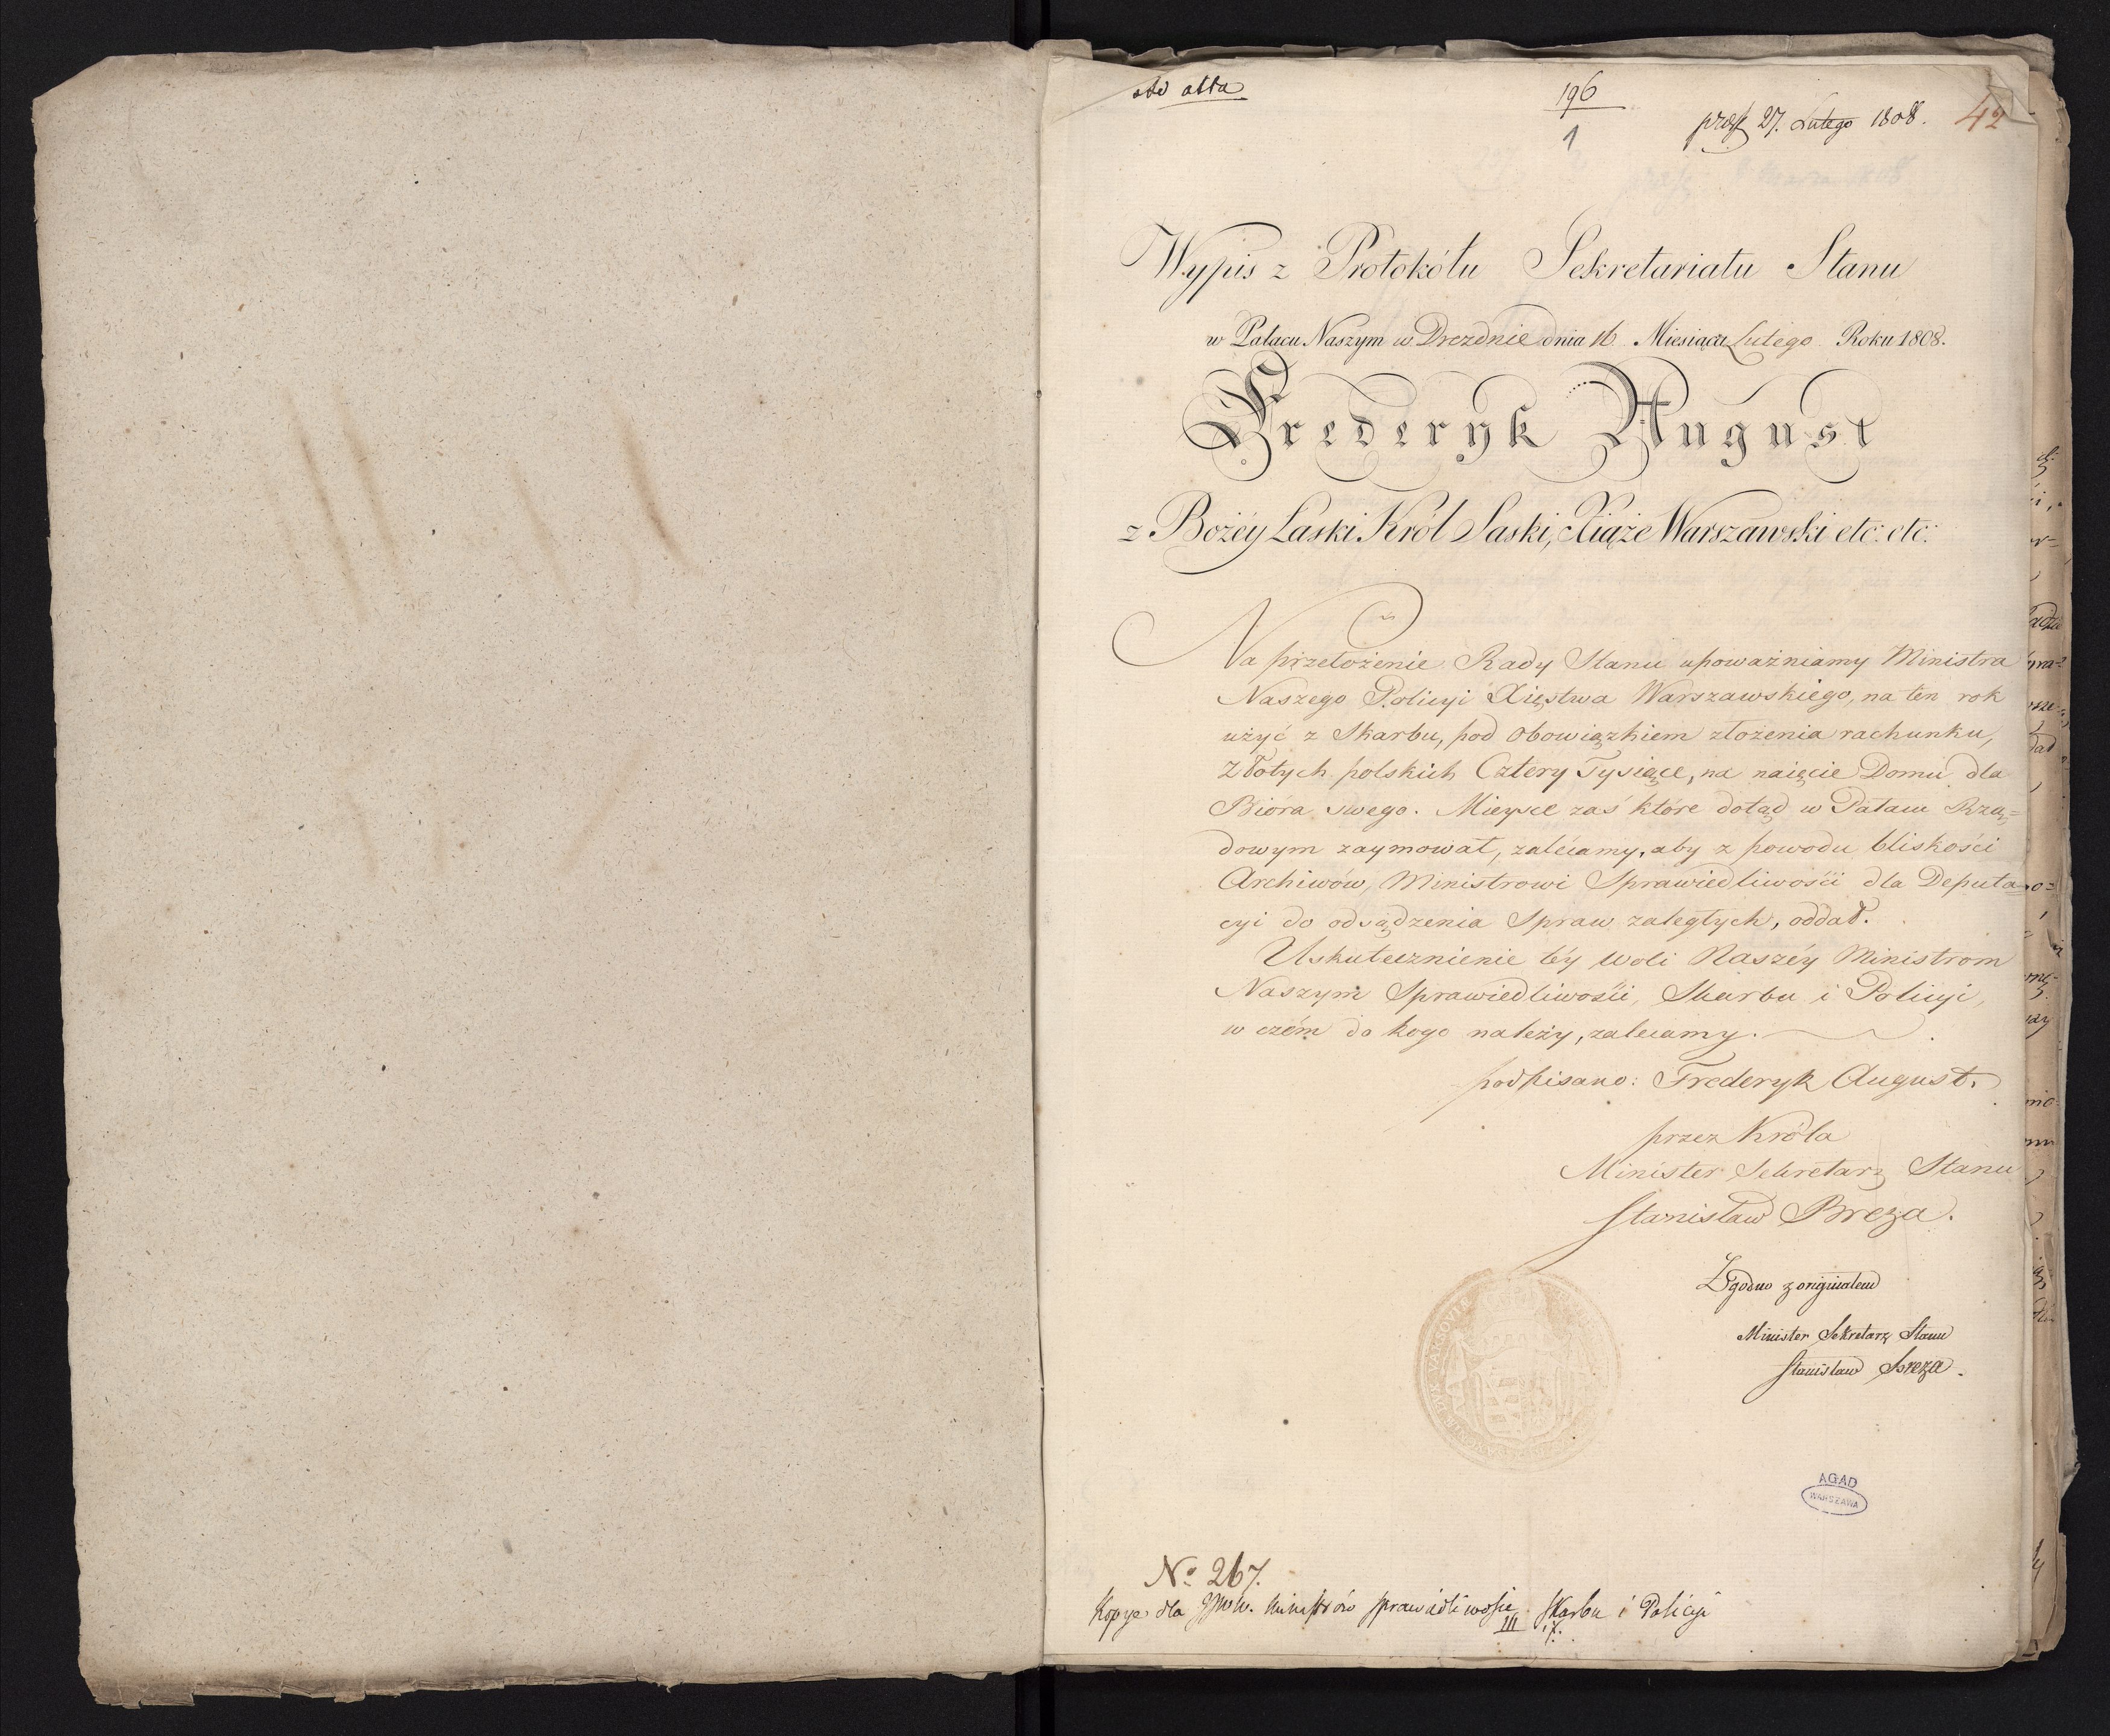 ad acta
196
1
præs. 27. Lutego 1808.
42
Wypis z Protokółu Sekretariatu Stanu
w Pałacu Naszym w Dreznie dnia 16 Miesiąca Lutego Roku 1808.
Frederyk August
z Bożéy Łaski Król Saski, Xiąże Warszawski etc: etc:
Na przełożenie Rady Stanu upoważniamy Ministra
Naszego Policyi Xięstwa Warszawskiego, na ten rok
użyć z Skarbu, pod obowiązkiem złożenia rachunku,
Złotych polskich Cztery Tysiące, na naięcie Domu dla
Bióra swego. Mieysce zaś które dotąd w Pałacu Rzą=
dowym zaymował, zalécamy, aby z powodu bliskości
Archiwów, Ministrowi Sprawiedliwości dla Deputa=
cyi do odsądzenia Spraw zaległych, oddał.
Uskutecznienie téy woli Naszéy Ministrom
Naszym Sprawiedliwości, Skarbu i Policyi,
w czém do kogo należy, zalecamy.
podpisano: Frederyk August.
przez Króla
Minister Sekretarz Stanu
Stanisław Breza.
Zgodno z originałem
Minister Sekretarz Stanu
Stanisław Breza.
AGAD
WARSZAWA
No. 267.
Kopye dla JWW. Ministrów Sprawiedliwości Skarbu i Policyi
III